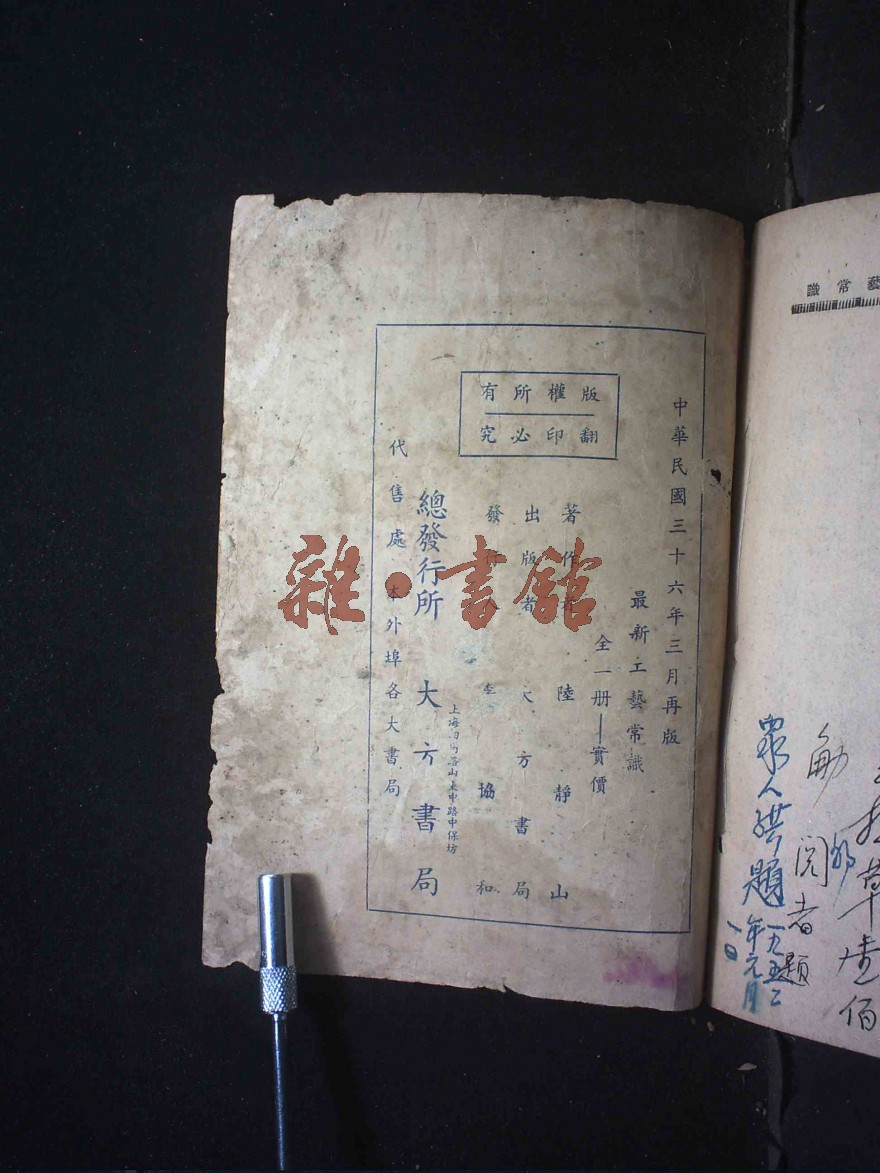 藝常識
中華民國三十六年三月再版
最新工藝常識
全一册—實價
版權所有
翻印必究
著作者 陸靜山
出版者 大方書局
發行人 李協和
總發行所 大方書局
上海 山東中路中保坊
代售處 本外埠各大書局
雜·書館
閱者題
題
一九五二
年元月